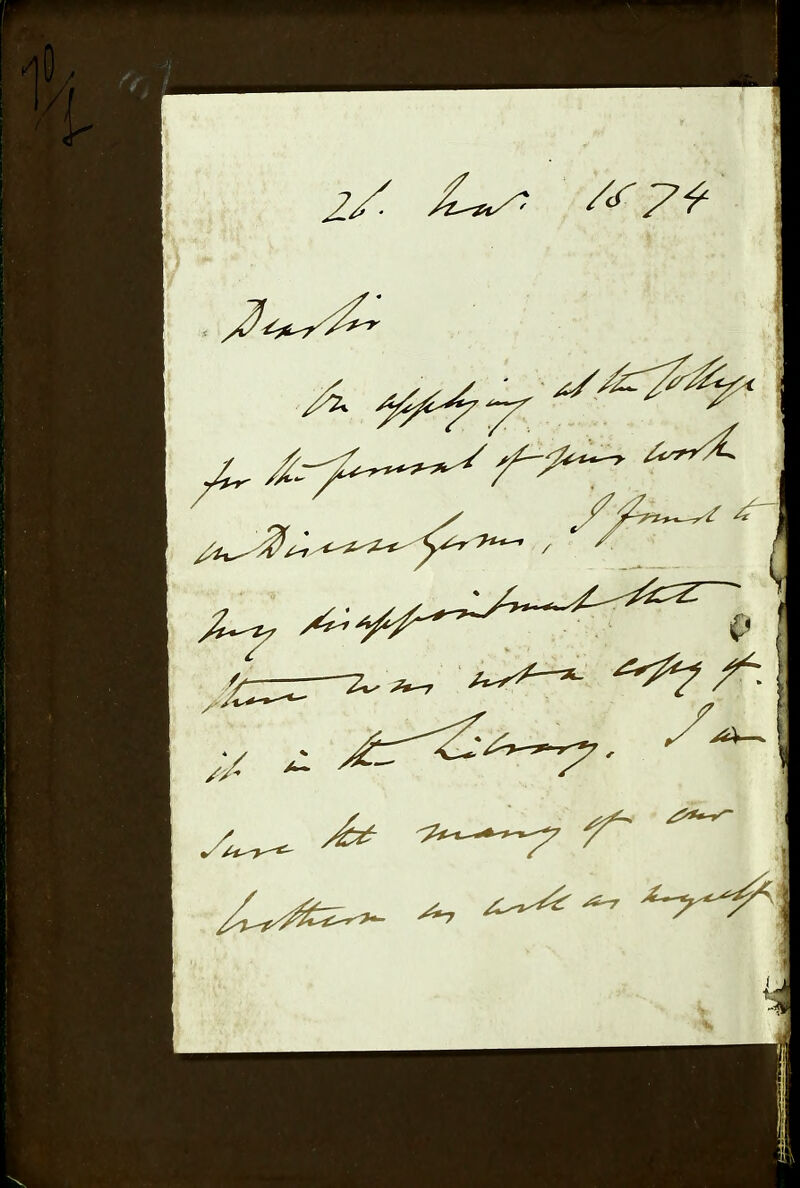 70/1
26. Nov. 1874
Dear Sir
On applying at the College
for the perusal of your work
on Disease Germs, I found to
my disappointment that
there was not a copy of
it in the Library. I am
sure that many of our
brethern as well as myself